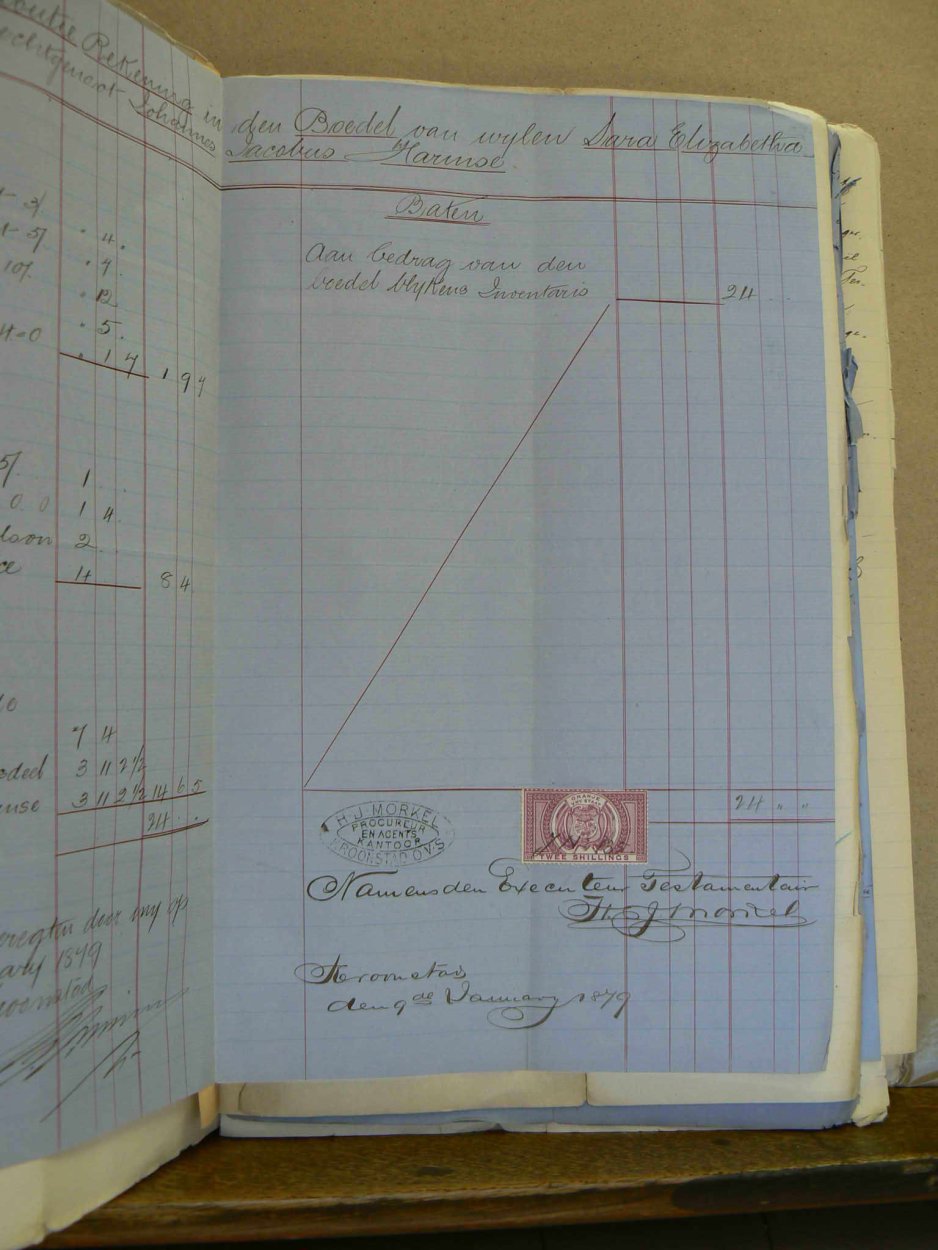 Rekening in
Johannes
den Boedel van wylen Sara Elizabetha
Jacobus Harmse
3/
5/ " 4 "
10/ " 7 "
" 12
4-0 " 5 "
" 1 7 1 9 7
5/ 1
0 0 1 4
2
4 8 4
7 4
3 11 2 1/2
3 11 2 1/2 14 6 5
24
door my op
1879
Baten
Aan bedrag van den
boedel blykens Inventaris 24
24 " "
H. J. MORKEL
PROCUREUR
EN AGENTS
KANTOOR
KROONSTAD O.V.S
ORANJE
VRY STAAT
TWEE SHILLINGS
Namens den Executeur Testamentair
H. J. Morkel
Kroonstad
den 9de January 1879